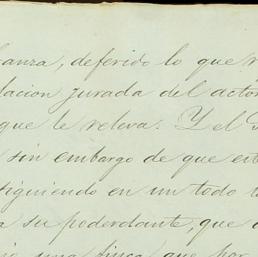 anza, deferido lo que
lacion jurada del actor
que le releva. Y el
sin embargo de que est
siguiendo en un todo
a su poderdante, que
una finca que por